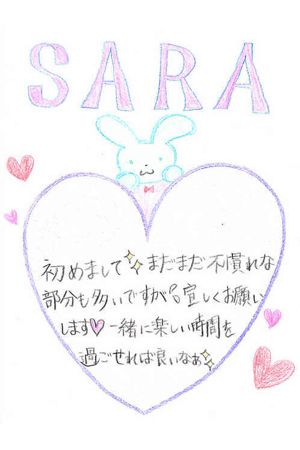 SARA
初めまして✨まだまだ不慣れな
部分も多いですが💦宜しくお願い
します♡一緒に楽しい時間を
過ごせれば良いなぁ✨